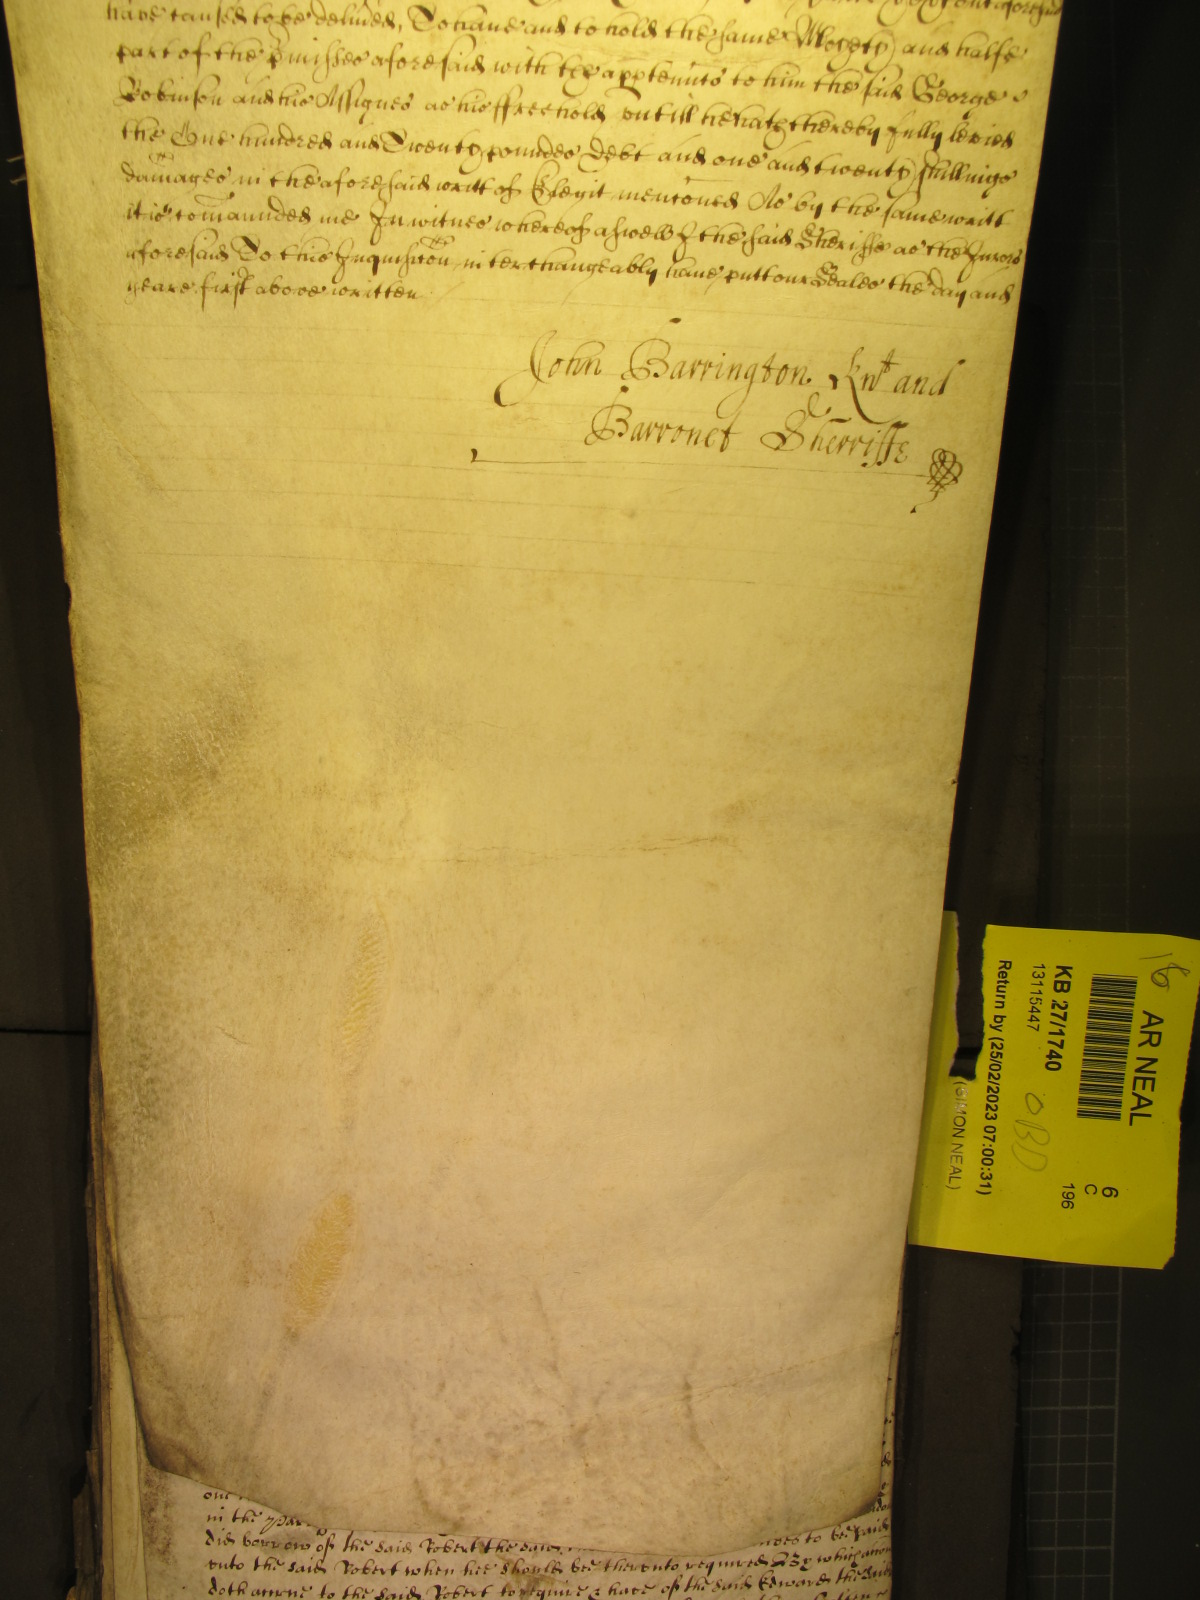 haue caused to be deliũed, To haue and to hold the same Moyety and halfe
part of the p̃misses aforesaid with th appteñnts to him the said George
Robinson and his Assignes as his ffreehold vntill he hath thereby fully levied
the One hundred and Twenty poundes Debt and one and twenty shillings
damages in the aforesaid writt of Elegit mentioned As by the same writt
it is com̃aunded me In witnes whereof aswell I the said Sheriffe as the Jurors
aforesaid To this Inquisic̃on interchangeably haue putt our Seales the day and
yeare first above written
John Barrington Knt and
Barronet Sherriffe
AR NEAL
16
KB 27/1740
13115447
OBD
6
C
196
Return by (25/02/2023 07:00:31)
(SIMON NEAL)
in the
did borrow of the said Robert the
to bee paid
vnto the said Robert when hee should bee therevnto required
doth attrue to the said Robert to require & have of the said Edward the said